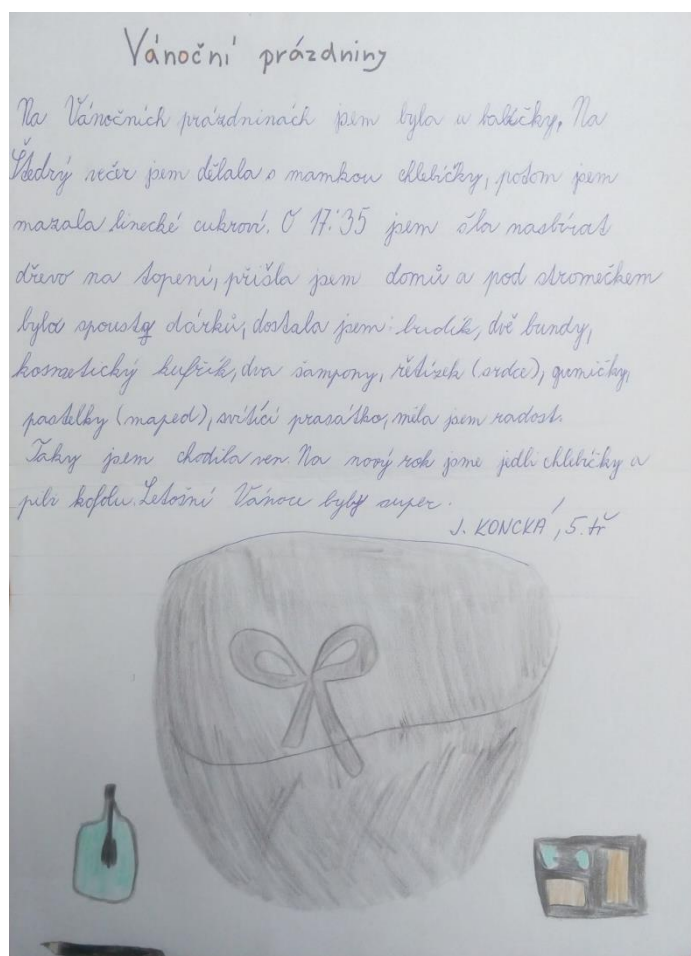 Vánoční prázdniny
Na Vánočních prázdninách jsem byla u babičky. Na
Štedrý večer jsem dělala s mamkou chlebíčky, potom jsem
mazala linecké cukroví. O 17:35 jsem šla nasbírat
dřevo na topení, přišla jsem domů a pod stromečkem
bylo spousta dárků, dostala jsem: budík, dvě bundy,
kosmetický kufřík, dva šampony, řětízek (srdce), gumičky,
pastelky (maped), svítící prasátko, měla jsem radost.
Taky jsem chodila ven. Na nový rok jsme jedli chlebíčky a
pili kofolu. Letošní Vánoce byly super.
J. KONCKÁ, 5. tř